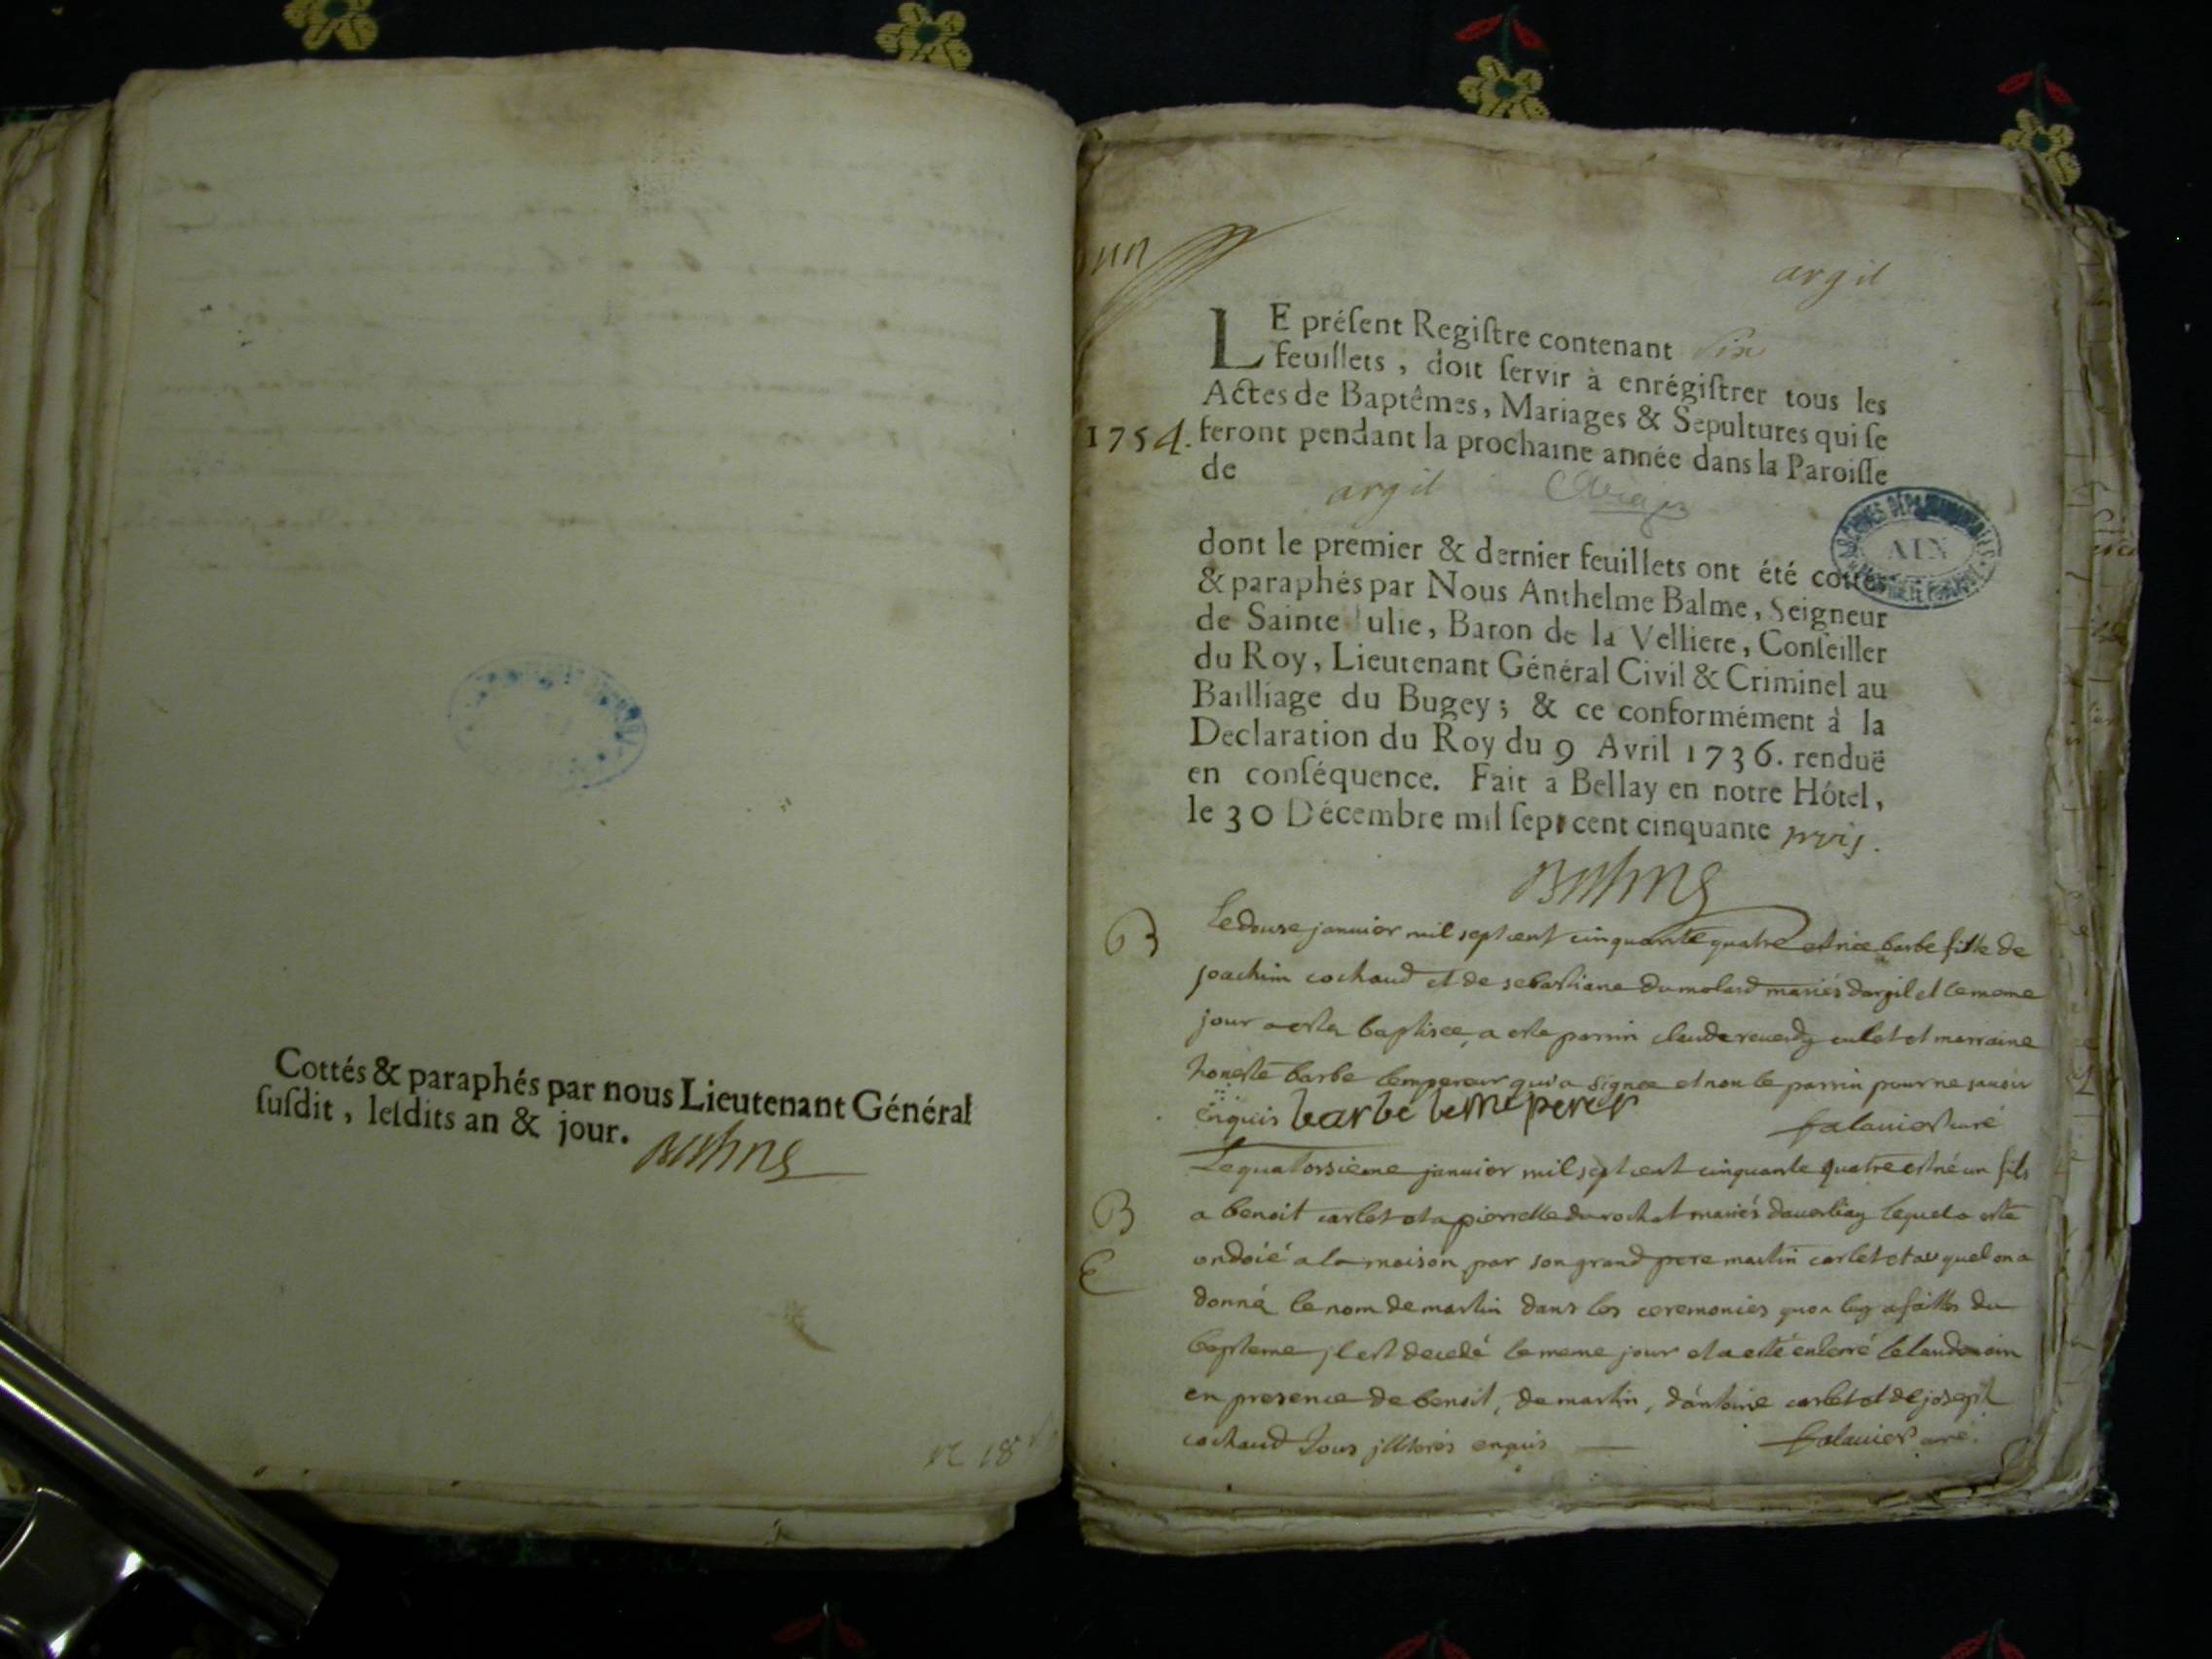 Cottés & paraphés par nous Lieutenant Général
ſuſdit, leſdits an & jour.
un
argil
LE préſent Regiſtre contenant ſix
feuillets, doit ſervir à enrégiſtrer tous les
Actes de Baptêmes, Mariages & Sepultures qui ſe
1754. feront pendant la prochaine année dans la Paroiſſe
de
argil
ARCHIVES DÉPARTEMENTALES
AIN
dont le premier & dernier feuillets ont été cottés
& paraphés par Nous Anthelme Balme, Seigneur
de Sainte Julie, Baron de la Velliere, Conſeiller
du Roy, Lieutenant Général Civil & Criminel au
Bailliage du Bugey; & ce conformément à la
Declaration du Roy du 9 Avril 1736. renduë
en conſéquence. Fait à Bellay en notre Hôtel,
le 30 Décembre mil ſept cent cinquante trois.
B
Le douse januier mil sept cent cinquante quatre est née barbe fille de
joachim cochaud et de sebastiane dumolard mariés dargil et le meme
jour a esté baptisee, a esté parrin claude reuerdy et marraine
honeste barbe lempereur qui a signee et non le parrin pour ne sauoir
enquis barbe lemperer
falauier curé
Le quatorsieme januier mil sept cent cinquante quatre est né un fils
B
a benoit carlet et a pierrette durochat mariés lequel a esté
E
ondoié a la maison par son grand pere martin carlet et auquel on a
donné le nom de martin dans les ceremonies quon luy a faittes du
bapteme jl est decedé le meme jour et a esté enterré le landemain
en presence de benoit, de martin, dántoine carlet et de joseph
cochaud tous jlliterés enquis
falauier curé.